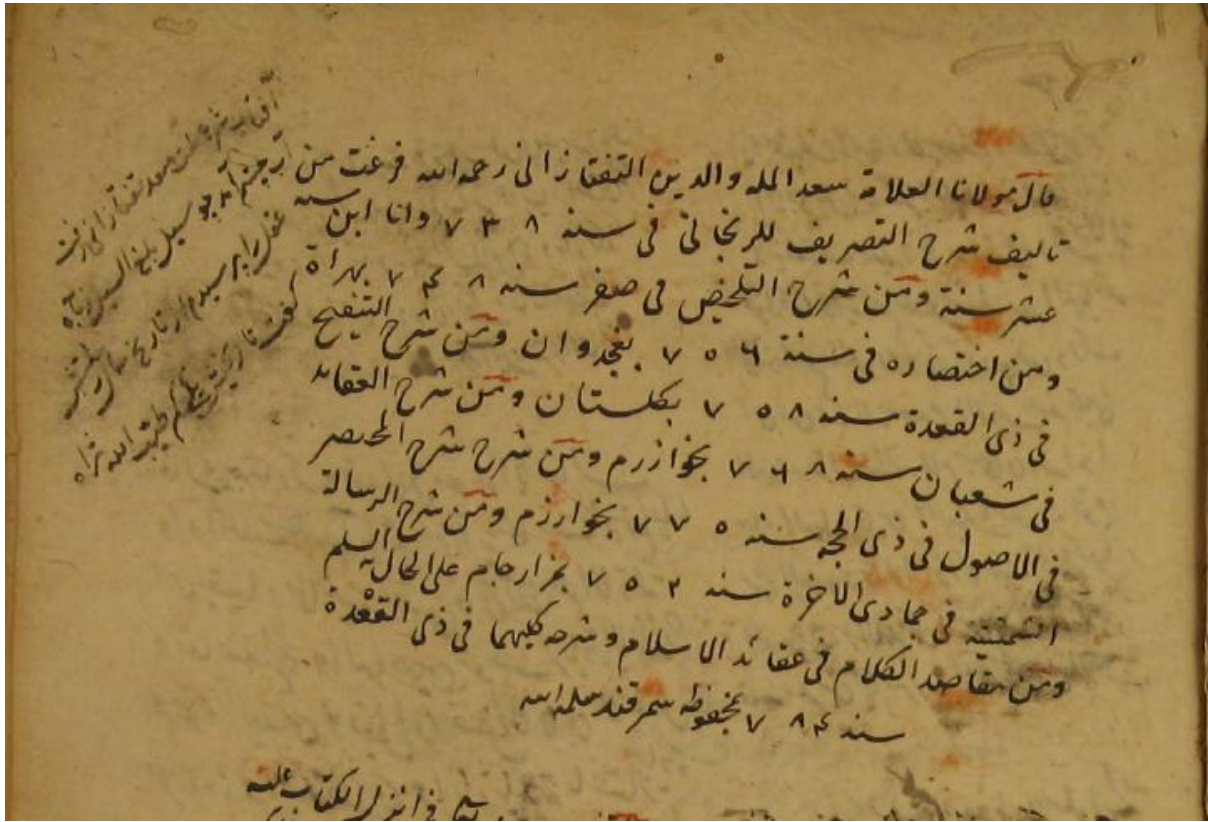 قال مولانا العلامة سعد المله والدين التفتازانى رحمه الله فرغت من
تاليف شرح التصريف للزنجانى فى سنه ٧٣٨ وانا ابن ستة
عشر سنة ومن شرح التلخيص فى صفر سنه ٧٤٨ بهراة
ومن اختصاره فى سنة ٧٥٦ بغجدوان ومن شرح التنقيح
فى ذى القعدة سنه ٧٥٨ بكلستان ومن شرح العقائد
فى شعبان سنه ٧٦٨ بخوارزم ومن شرح شرح المختصر
فى الاصول فى ذى الحجه سنه ٧٧٥ بخوارزم ومن شرح الرسالة
الشمسيه فى جمادى الاخرة سنه ٧٥٢ بمزار جام على الحال به السلم
ومن مقاصد الكلام فى عقائد الاسلام وشرحه كليهما فى ذى القعدة
سنه ٧٨٤ بمحفوظه سمرقند سلمه الله
آفتاب شرع ملت سعد تفتازانى رفت
عقل را پرسيدم از تاريخ سال
گفت تاريخش يكى كم طيب الله ثراه
فى انزل الكتاب عليه